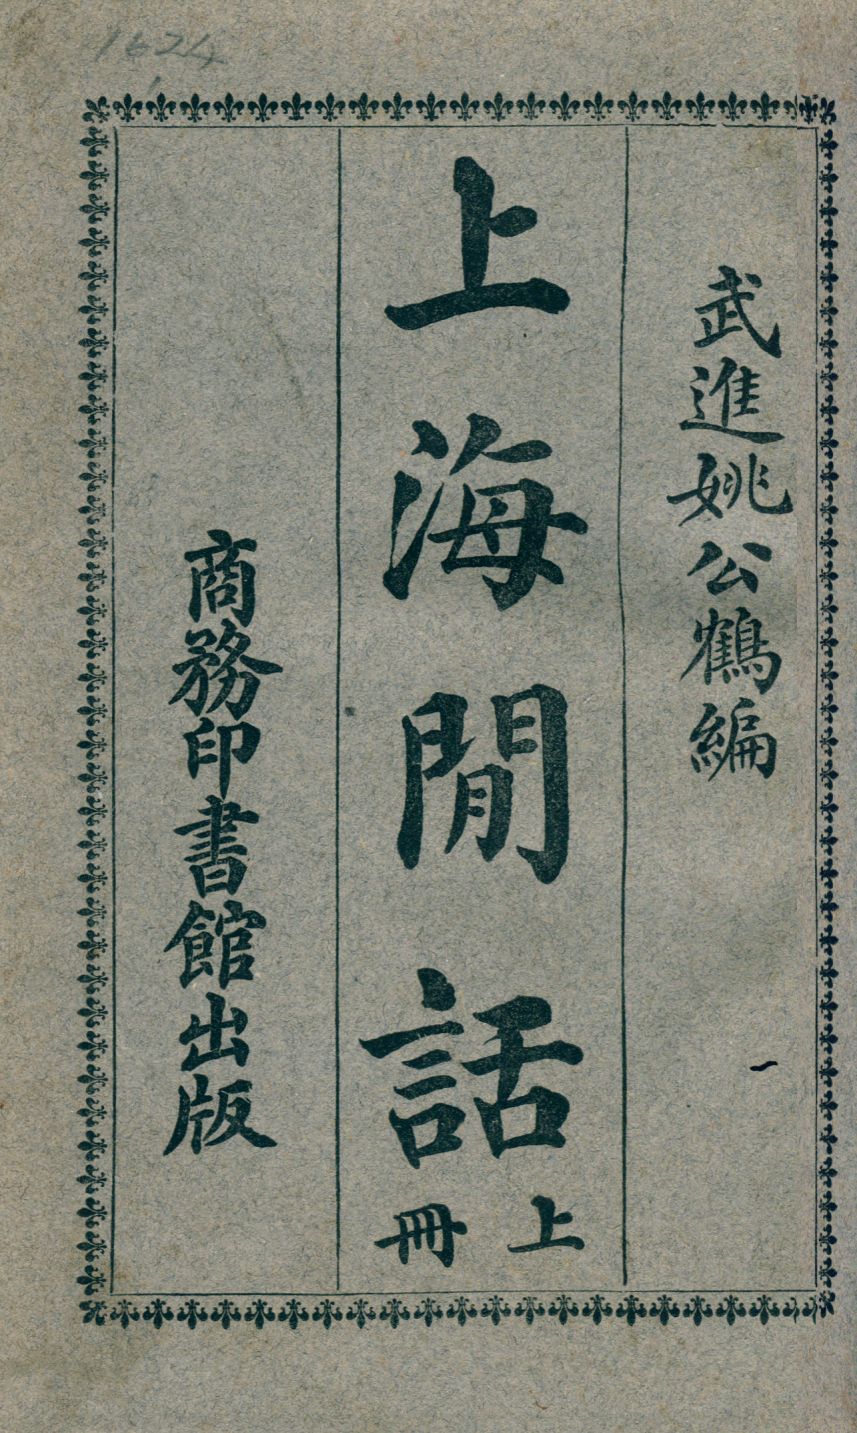 1624
武進姚公鶴編
上海閒話
上冊
商務印書館出版